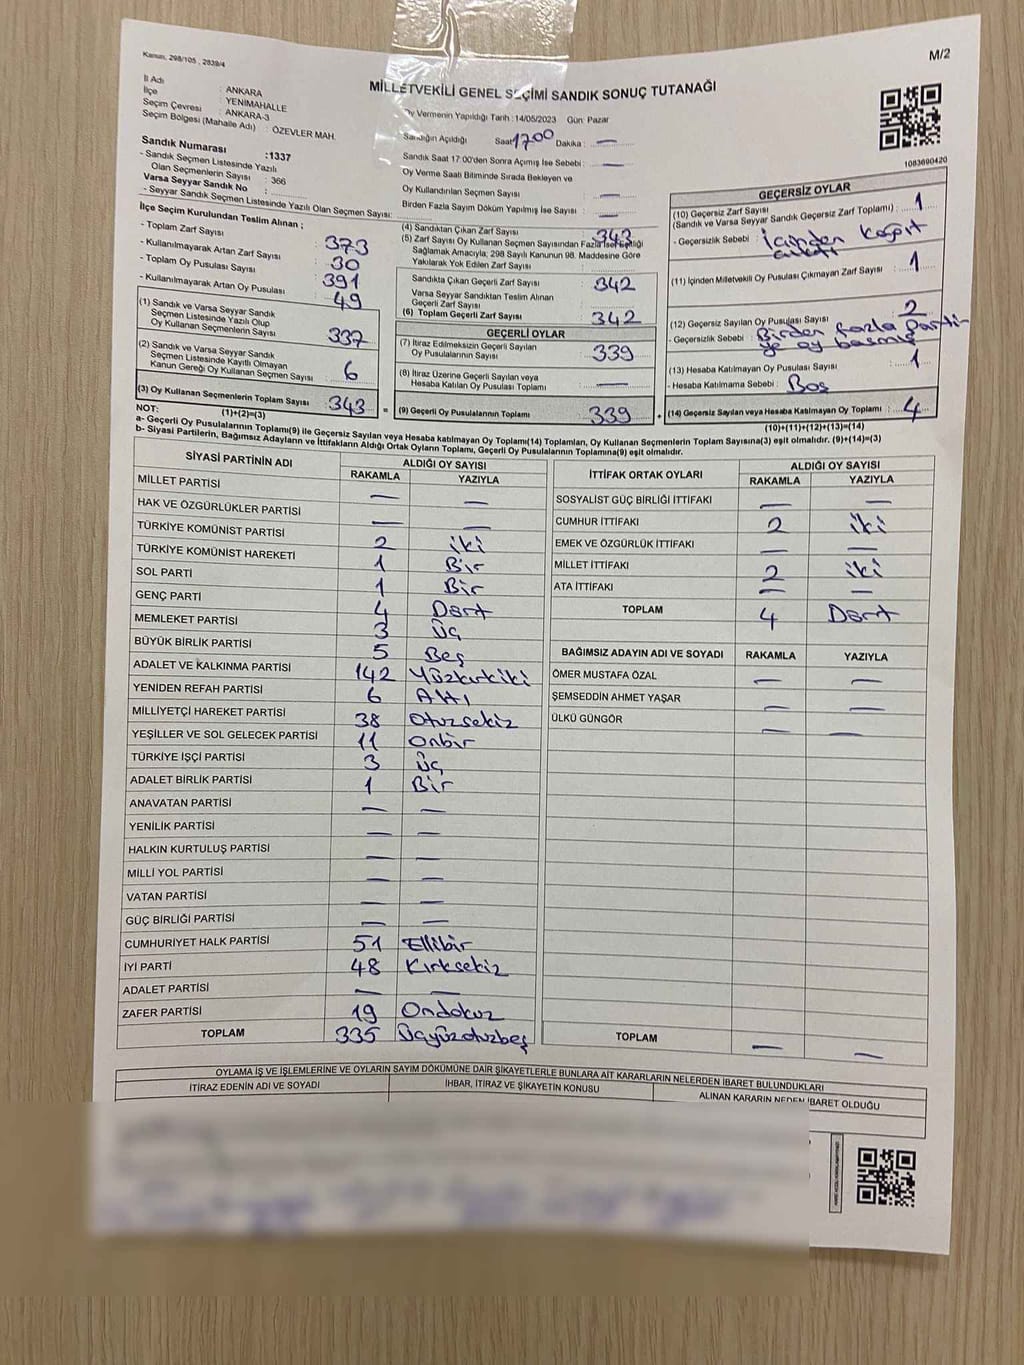 Kanun, 298/105 , 2839/4
M/2
MİLLETVEKİLİ GENEL SEÇİMİ SANDIK SONUÇ TUTANAĞI
İl Adı : ANKARA
İlçe : YENİMAHALLE
Seçim Çevresi : ANKARA-3
Seçim Bölgesi (Mahalle Adı) : ÖZEVLER MAH.
Sandık Numarası :1337
- Sandık Seçmen Listesinde Yazılı
Olan Seçmenlerin Sayısı : 366
Varsa Seyyar Sandık No :
- Seyyar Sandık Seçmen Listesinde Yazılı Olan Seçmen Sayısı:
Oy Vermenin Yapıldığı Tarih :14/05/2023 Gün: Pazar
Sandığın Açıldığı Saat 17.00 Dakika : —
Sandık Saat 17:00'den Sonra Açımış İse Sebebi : —
Oy Verme Saati Bitiminde Sırada Bekleyen ve
Oy Kullandırılan Seçmen Sayısı : —
Birden Fazla Sayım Döküm Yapılmış İse Sayısı : —
1083690420
İlçe Seçim Kurulundan Teslim Alınan ;
- Toplam Zarf Sayısı : 373
- Kullanılmayarak Artan Zarf Sayısı : 30
- Toplam Oy Pusulası Sayısı : 391
- Kullanılmayarak Artan Oy Pusulası : 49
(1) Sandık ve Varsa Seyyar Sandık
Seçmen Listesinde Yazılı Olup
Oy Kullanan Seçmenlerin Sayısı : 337
(2) Sandık ve Varsa Seyyar Sandık
Seçmen Listesinde Kayıtlı Olmayan
Kanun Gereği Oy Kullanan Seçmen Sayısı : 6
(3) Oy Kullanan Seçmenlerin Toplam Sayısı : 343
(1)+(2)=(3)
(4) Sandıktan Çıkan Zarf Sayısı : 343
(5) Zarf Sayısı Oy Kullanan Seçmen Sayısından Fazla İse, Eşitliği
Sağlamak Amacıyla; 298 Sayılı Kanunun 98. Maddesine Göre
Yakılarak Yok Edilen Zarf Sayısı :
Sandıkta Çıkan Geçerli Zarf Sayısı : 342
Varsa Seyyar Sandıktan Teslim Alınan
Geçerli Zarf Sayısı :
(6) Toplam Geçerli Zarf Sayısı : 342
GEÇERLİ OYLAR
(7) İtiraz Edilmeksizin Geçerli Sayılan
Oy Pusulalarının Sayısı : 339
(8) İtiraz Üzerine Geçerli Sayılan veya
Hesaba Katılan Oy Pusulası Toplamı : —
= (9) Geçerli Oy Pusulalarının Toplamı : 339 +
GEÇERSİZ OYLAR
(10) Geçersiz Zarf Sayısı
(Sandık ve Varsa Seyyar Sandık Geçersiz Zarf Toplamı) : 1
- Geçersizlik Sebebi : İçinden Kağıt
(11) İçinden Milletvekili Oy Pusulası Çıkmayan Zarf Sayısı : 1
(12) Geçersiz Sayılan Oy Pusulası Sayısı : 2
- Geçersizlik Sebebi : Birden fazla parti-
ye oy basmış
(13) Hesaba Katılmayan Oy Pusulası Sayısı : 1
- Hesaba Katılmama Sebebi : Boş
(14) Geçersiz Sayılan veya Hesaba Katılmayan Oy Toplamı : 4
(10)+(11)+(12)+(13)=(14)
NOT:
a- Geçerli Oy Pusulalarının Toplamı(9) ile Geçersiz Sayılan veya Hesaba katılmayan Oy Toplamı(14) Toplamları, Oy Kullanan Seçmenlerin Toplam Sayısına(3) eşit olmalıdır. (9)+(14)=(3)
b- Siyasi Partilerin, Bağımsız Adayların ve İttifakların Aldığı Ortak Oyların Toplamı, Geçerli Oy Pusulalarının Toplamına(9) eşit olmalıdır.
SİYASİ PARTİNİN ADI ALDIĞI OY SAYISI
RAKAMLA YAZIYLA
MİLLET PARTİSİ — —
HAK VE ÖZGÜRLÜKLER PARTİSİ — —
TÜRKİYE KOMÜNİST PARTİSİ 2 iki
TÜRKİYE KOMÜNİST HAREKETİ 1 Bir
SOL PARTİ 1 Bir
GENÇ PARTİ 4 Dört
MEMLEKET PARTİSİ 3 Üç
BÜYÜK BİRLİK PARTİSİ 5 Beş
ADALET VE KALKINMA PARTİSİ 142 Yüzkırkiki
YENİDEN REFAH PARTİSİ 6 Altı
MİLLİYETÇİ HAREKET PARTİSİ 38 Otuzsekiz
YEŞİLLER VE SOL GELECEK PARTİSİ 11 Onbir
TÜRKİYE İŞÇİ PARTİSİ 3 Üç
ADALET BİRLİK PARTİSİ 1 Bir
ANAVATAN PARTİSİ — —
YENİLİK PARTİSİ — —
HALKIN KURTULUŞ PARTİSİ — —
MİLLİ YOL PARTİSİ — —
VATAN PARTİSİ — —
GÜÇ BİRLİĞİ PARTİSİ — —
CUMHURİYET HALK PARTİSİ 51 Ellibir
İYİ PARTİ 48 Kırksekiz
ADALET PARTİSİ — —
ZAFER PARTİSİ 19 Ondokuz
TOPLAM 335 Üçyüzotuzbeş
İTTİFAK ORTAK OYLARI ALDIĞI OY SAYISI
RAKAMLA YAZIYLA
SOSYALİST GÜÇ BİRLİĞİ İTTİFAKI — —
CUMHUR İTTİFAKI 2 iki
EMEK VE ÖZGÜRLÜK İTTİFAKI — —
MİLLET İTTİFAKI 2 iki
ATA İTTİFAKI — —
TOPLAM 4 Dört
BAĞIMSIZ ADAYIN ADI VE SOYADI RAKAMLA YAZIYLA
ÖMER MUSTAFA ÖZAL — —
ŞEMSEDDİN AHMET YAŞAR — —
ÜLKÜ GÜNGÖR — —
TOPLAM — —
OYLAMA İŞ VE İŞLEMLERİNE VE OYLARIN SAYIM DÖKÜMÜNE DAİR ŞİKAYETLERLE BUNLARA AİT KARARLARIN NELERDEN İBARET BULUNDUKLARI
İTİRAZ EDENİN ADI VE SOYADI İHBAR, İTİRAZ VE ŞİKAYETİN KONUSU ALINAN KARARIN NEDEN İBARET OLDUĞU